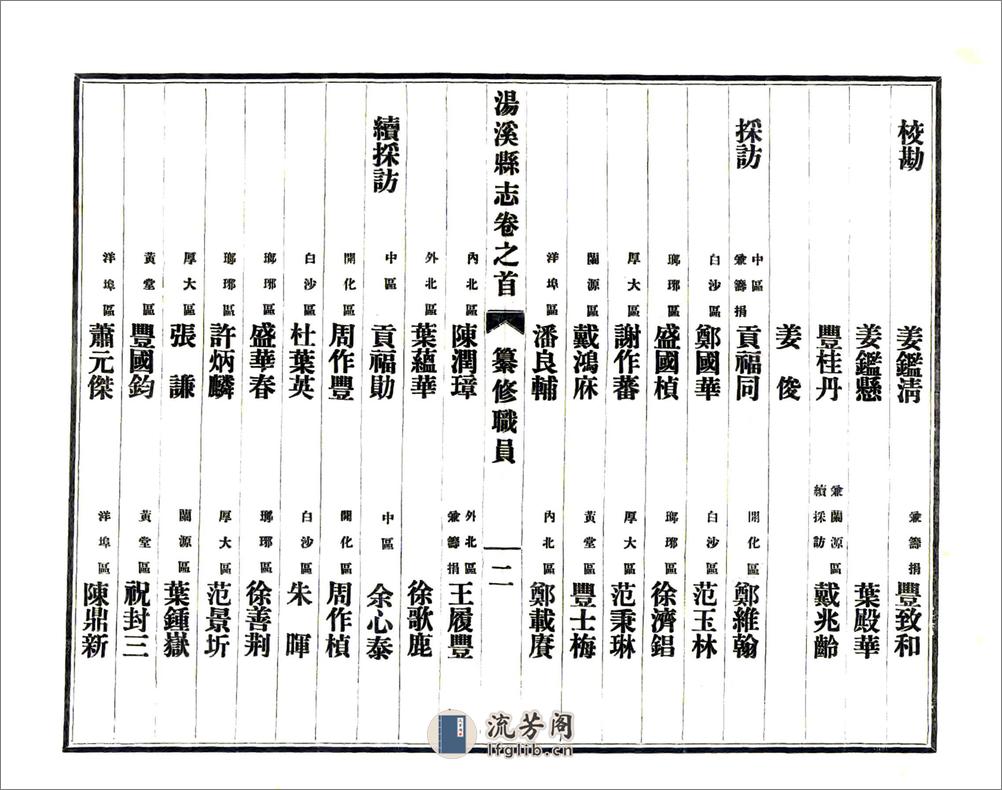 校勘
姜鑑淸 兼籌捐 豐致和
姜鑑懸 葉殿華
豐桂丹 兼蘭源區續採訪 戴兆齡
姜俊
採訪
中區兼籌捐 貢福同 開化區 鄭維翰
白沙區 鄭國華 白沙區 范玉林
瑯琊區 盛國楨 瑯琊區 徐濟錩
厚大區 謝作蕃 厚大區 范秉琳
蘭源區 戴鴻庥 黃堂區 豐士梅
洋埠區 潘良輔 內北區 鄭載賡
湯溪縣志卷之首 纂修職員 二
內北區 陳潤璋 外北區兼籌捐 王履豐
外北區 葉蘊華 徐歌鹿
續採訪
中區 貢福勛 中區 余心泰
開化區 周作豐 開化區 周作楨
白沙區 杜葉英 白沙區 朱暉
瑯琊區 盛華春 瑯琊區 徐善荆
瑯琊區 許炳麟 厚大區 范景圻
厚大區 張謙 蘭源區 葉鍾嶽
黃堂區 豐國鈞 黃堂區 祝封三
洋埠區 蕭元傑 洋埠區 陳鼎新
流芳阁
lfglib.cn